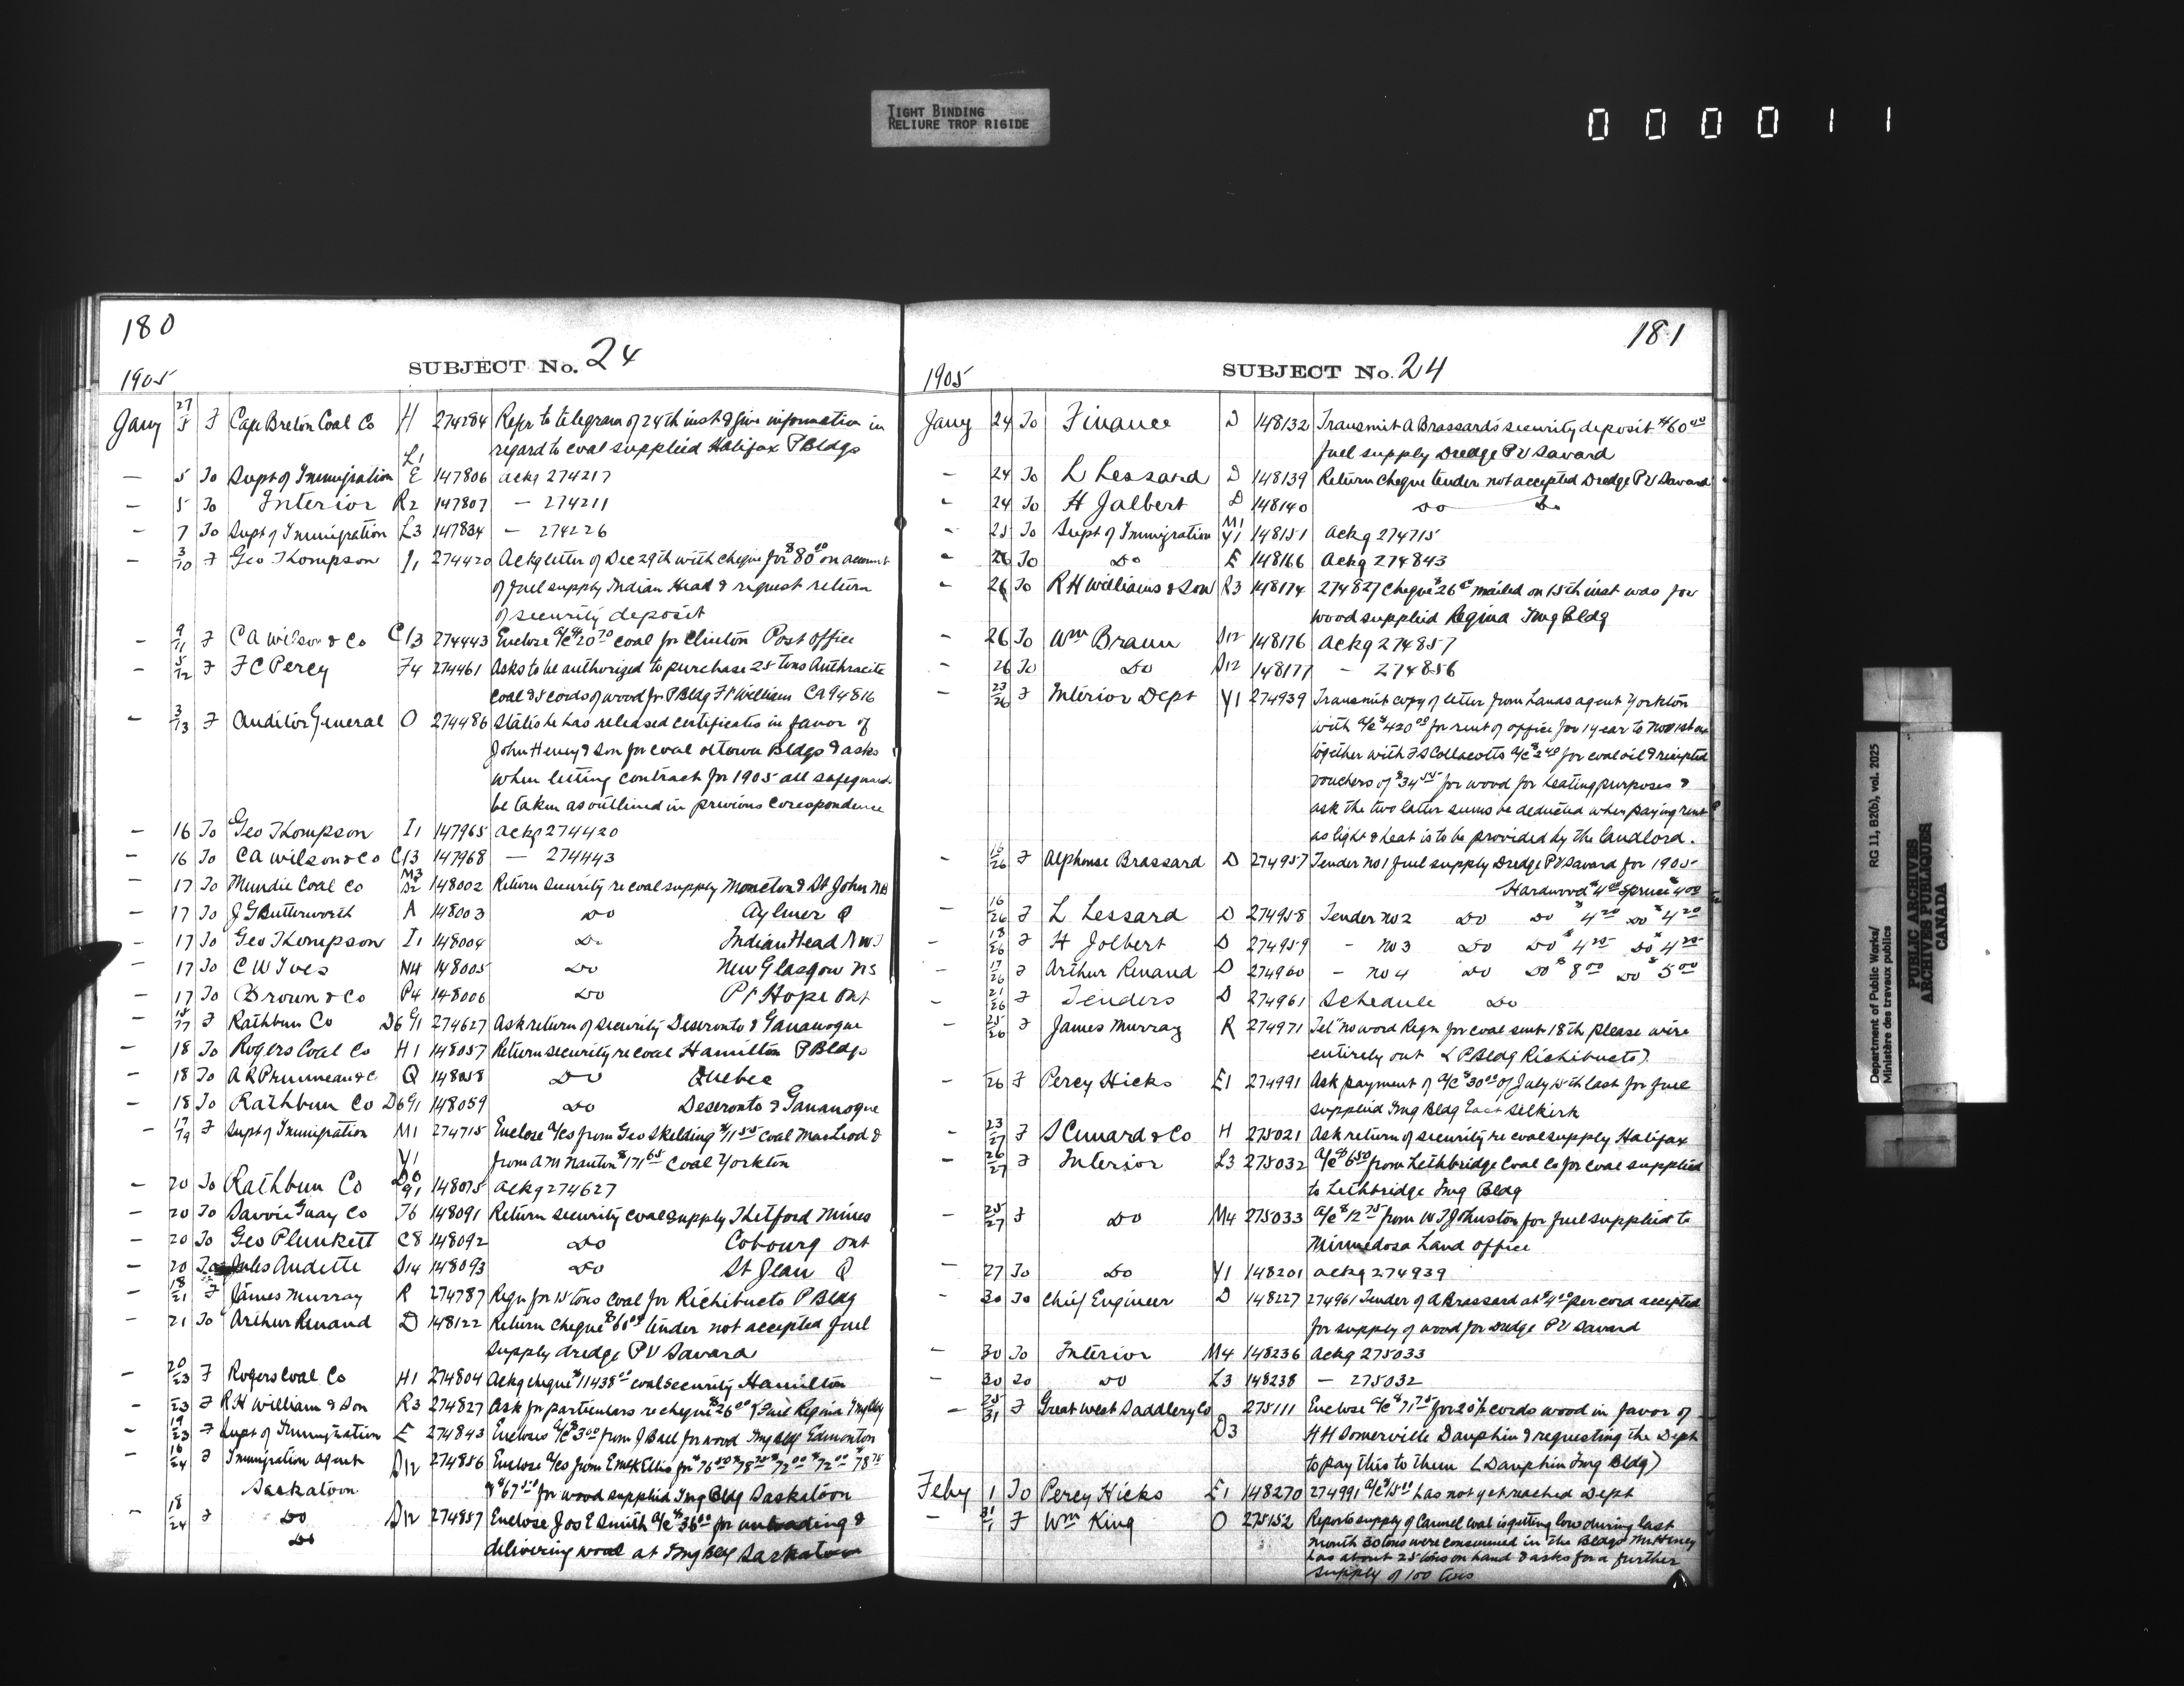 TIGHT BINDING
RELIURE TROP RIGIDE
000011
180
SUBJECT No. 24
1905
Jany 27/5 F Cape Breton Coal Co H 274284 Refer to telegram of 24th inst & give information in
regard to coal supplied Halifax P Bldgs
L1
— 5 To Supt of Immigration E 147806 ackg 274217
— 5 To Interior R2 147807 — 274211
— 7 To Supt of Immigration L3 147834 — 274226
— 3/10 F Geo Thompson I1 274420 Ackg letter of Dec 29th with cheque for $80 00 on account
of fuel supply Indian Head & request return
of security deposit
— 9/11 F C A Wilson & Co C13 274443 Enclose a/c $20 70 coal for Clinton Post office
— 5/12 F F C Percy F4 274461 Asks to be authorized to purchase 25 tons Anthracite
coal & 5 cords of wood for P Bldg Ft William CA 94816
— 3/13 F Auditor General O 274486 States he has released certificates in favor of
John Heney & Son for coal ottawa Bldgs & asks
when letting contract for 1905 all safeguards
be taken as outlined in previous corespondence
— 16 To Geo Thompson I1 147965 ackg 274420
— 16 To C A Wilson & Co C13 147968 — 274443
M3
— 17 To Mundie Coal Co S2 148002 Return security re coal supply Moncton & St John NB
— 17 To J G Butterworth A 148003 Do Aylmer Q
— 17 To Geo Thompson I1 148004 Do Indian Head NWT
— 17 To C W Ives N4 148005 Do New Glasgow NS
— 17 To Brown & Co P4 148006 Do Pt Hope Ont
— 15/17 F Rathbun Co D6 G1 274627 Ask return of security Deseronto & Gananoque
— 18 To Rogers Coal Co H1 148057 Return security re coal Hamilton P Bldgs
— 18 To A R Pruneau & C Q 148058 Do Quebec
— 18 To Rathbun Co D6 G1 148059 Do Deseronto & Gananoque
— 17/19 F Supt of Immigration M1 274715 Enclose a/cs from Geo Skelding $11 55 coal MacLeod &
Y1 from A M Nanton $171 65 coal Yorkton
D6
— 20 To Rathbun Co G1 148075 ackg 274627
— 20 To Savoie Guay Co T6 148091 Return security coal supply Thetford Mines
— 20 To Geo Plunkett C8 148092 Do Cobourg Ont
— 20 To Jules Audette S14 148093 Do St Jean Q
— 18/21 F James Murray R 274787 Reqn for 15 tons coal for Richibucto P Bldg
— 21 To Arthur Renaud D 148122 Return cheque $60 00 tender not accepted fuel
supply dredge P V Savard
— 20/23 F Rogers Coal Co H1 274804 Ackg cheque $11438 00 coal security Hamilton
— /23 F R H William & Son R3 274827 Ask for particulars re cheque $26 00 (Fuel Regina Img Bldg
— 19/23 F Supt of Immigration E 274843 Encloses a/c $3 00 from J Ball for wood Img Bldg Edmonton
— 16/24 F Immigration agent S12 274856 Enclose a/cs from E McK Ellis for $76 50 $78 75 $72 00 $72 00 $78 75
Saskatoon & $67 50 for wood supplied Img Bldg Saskatoon
— 18/24 F Do S12 274857 Enclose Jos E Smith a/c $36 00 for unloading &
Do delivering wood at Img Bldg Saskatoon
181
SUBJECT No. 24
1905
Jany 24 To Finance D 148132 Transmit A Brassard's security deposit $60 00
fuel supply Dredge P V Savard
— 24 To L Lessard D 148139 Return cheque tender not accepted Dredge P V Savard
— 24 To H Jalbert D 148140 Do Do
M1
— 25 To Supt of Immigration Y1 148151 Ackg 274715
— 26 To Do E 148166 Ackg 274843
— 26 To R H Williams & Son R3 148174 274827 Cheque $26 00 mailed on 15th inst was for
wood supplied Regina Img Bldg
— 26 To Wm Braun S12 148176 Ackg 274857
— 26 To Do S12 148177 — 274856
— 23/26 F Interior Dept Y1 274939 Transmit copy of letter from Lands agent Yorkton
with a/c $420 00 for rent of office for 1 year to Nov 1st
together with F S Collacotts a/c $2 40 for coal oil & receipted
vouchers of $34 55 for wood for heating purposes &
ask the two latter sums be deducted when paying rent
as light & heat is to be provided by the landlord.
— 16/26 F Alphonse Brassard D 274957 Tender No 1 fuel supply Dredge P V Savard for 1905
Hardwood $4 00 Spruce $4 00
— 16/26 F L Lessard D 274958 Tender no 2 Do Do $4 20 Do $4 20
— 18/26 F H Jolbert D 274959 — no 3 Do Do $4 25 Do $4 25
— 17/26 F Arthur Renaud D 274960 — no 4 Do Do $8 00 Do $5 00
— 21/26 F Tenders D 274961 Schedule Do
— 25/26 F James Murray R 274971 Tel "no word Reqn for coal sent 18th please wire
entirely out (P Bldg Richibucto)
— /26 F Percy Hicks E1 274991 Ask payment of a/c $30 00 of July 15th last for fuel
supplied Img Bldg East Selkirk
— 23/27 F S Cunard & Co H 275021 Ask return of security re coal supply Halifax
— 26/27 F Interior L3 275032 a/c $6 50 from Lethbridge Coal Co for coal supplied
to Lethbridge Img Bldg
— 25/27 F Do M4 275033 a/c $12 75 from W T Johnston for fuel supplied to
Minnedosa Land office
— 27 To Do Y1 148201 ackg 274939
— 30 To Chief Engineer D 148227 274961 Tender of A Brassard at $4 00 per cord accepted
for supply of wood for Dredge P V Savard
— 30 To Interior M4 148236 Ackg 275033
— 30 To Do L3 148238 — 275032
— 25/31 F Great West Saddlery Co 275111 Enclose a/c $71 75 for 20½ cords wood in favor of
D3 H H Somerville Dauphin & requesting the Dept
to pay this to them (Dauphin Img Bldg)
Feby 1 To Percy Hicks E1 148270 274991 a/c $15 00 has not yet reached Dept
— 31/1 F Wm King O 275152 Reports supply of Cannel coal is getting low during last
month 30 tons were consumed in the Bldgs Mr Heney
has about 25 tons on hand & asks for a further
supply of 100 tons
Department of Public Works/
Ministère des travaux publics
RG 11, B2(b), vol. 2025
PUBLIC ARCHIVES
ARCHIVES PUBLIQUES
CANADA